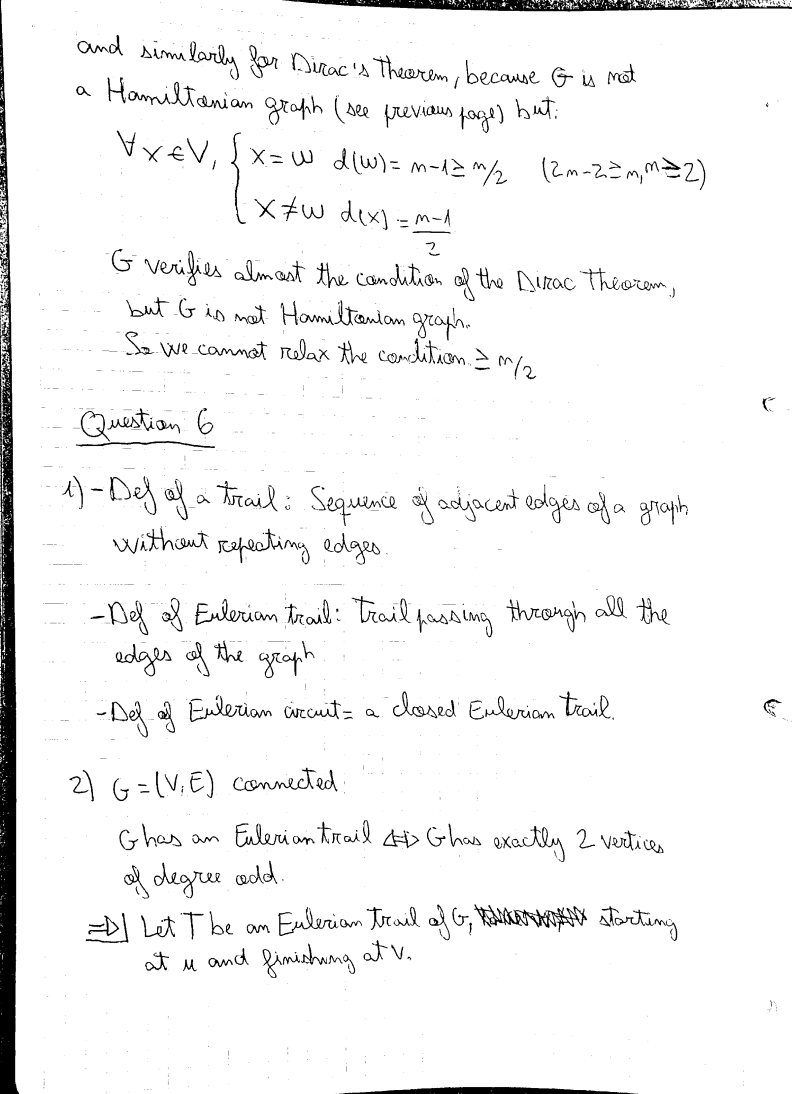 and similarly for Dirac's Theorem, because G is not
a Hamiltonian graph (see previous page) but:
∀x∈V, { x=w d(w)= n-1≥n/2 (2n-2≥n, n≥2)
x≠w d(x)=(n-1)/2
G verifies almost the condition of the Dirac Theorem,
but G is not Hamiltonian graph.
So we cannot relax the condition ≥ n/2
Question 6
1) - Def of a trail: Sequence of adjacent edges of a graph
without repeating edges.
- Def of Eulerian trail: Trail passing through all the
edges of the graph
- Def of Eulerian circuit= a closed Eulerian trail.
2) G=(V,E) connected
G has an Eulerian trail ⇔ G has exactly 2 vertices
of degree odd.
⇒| Let T be an Eulerian trail of G, starting
at u and finishing at v.